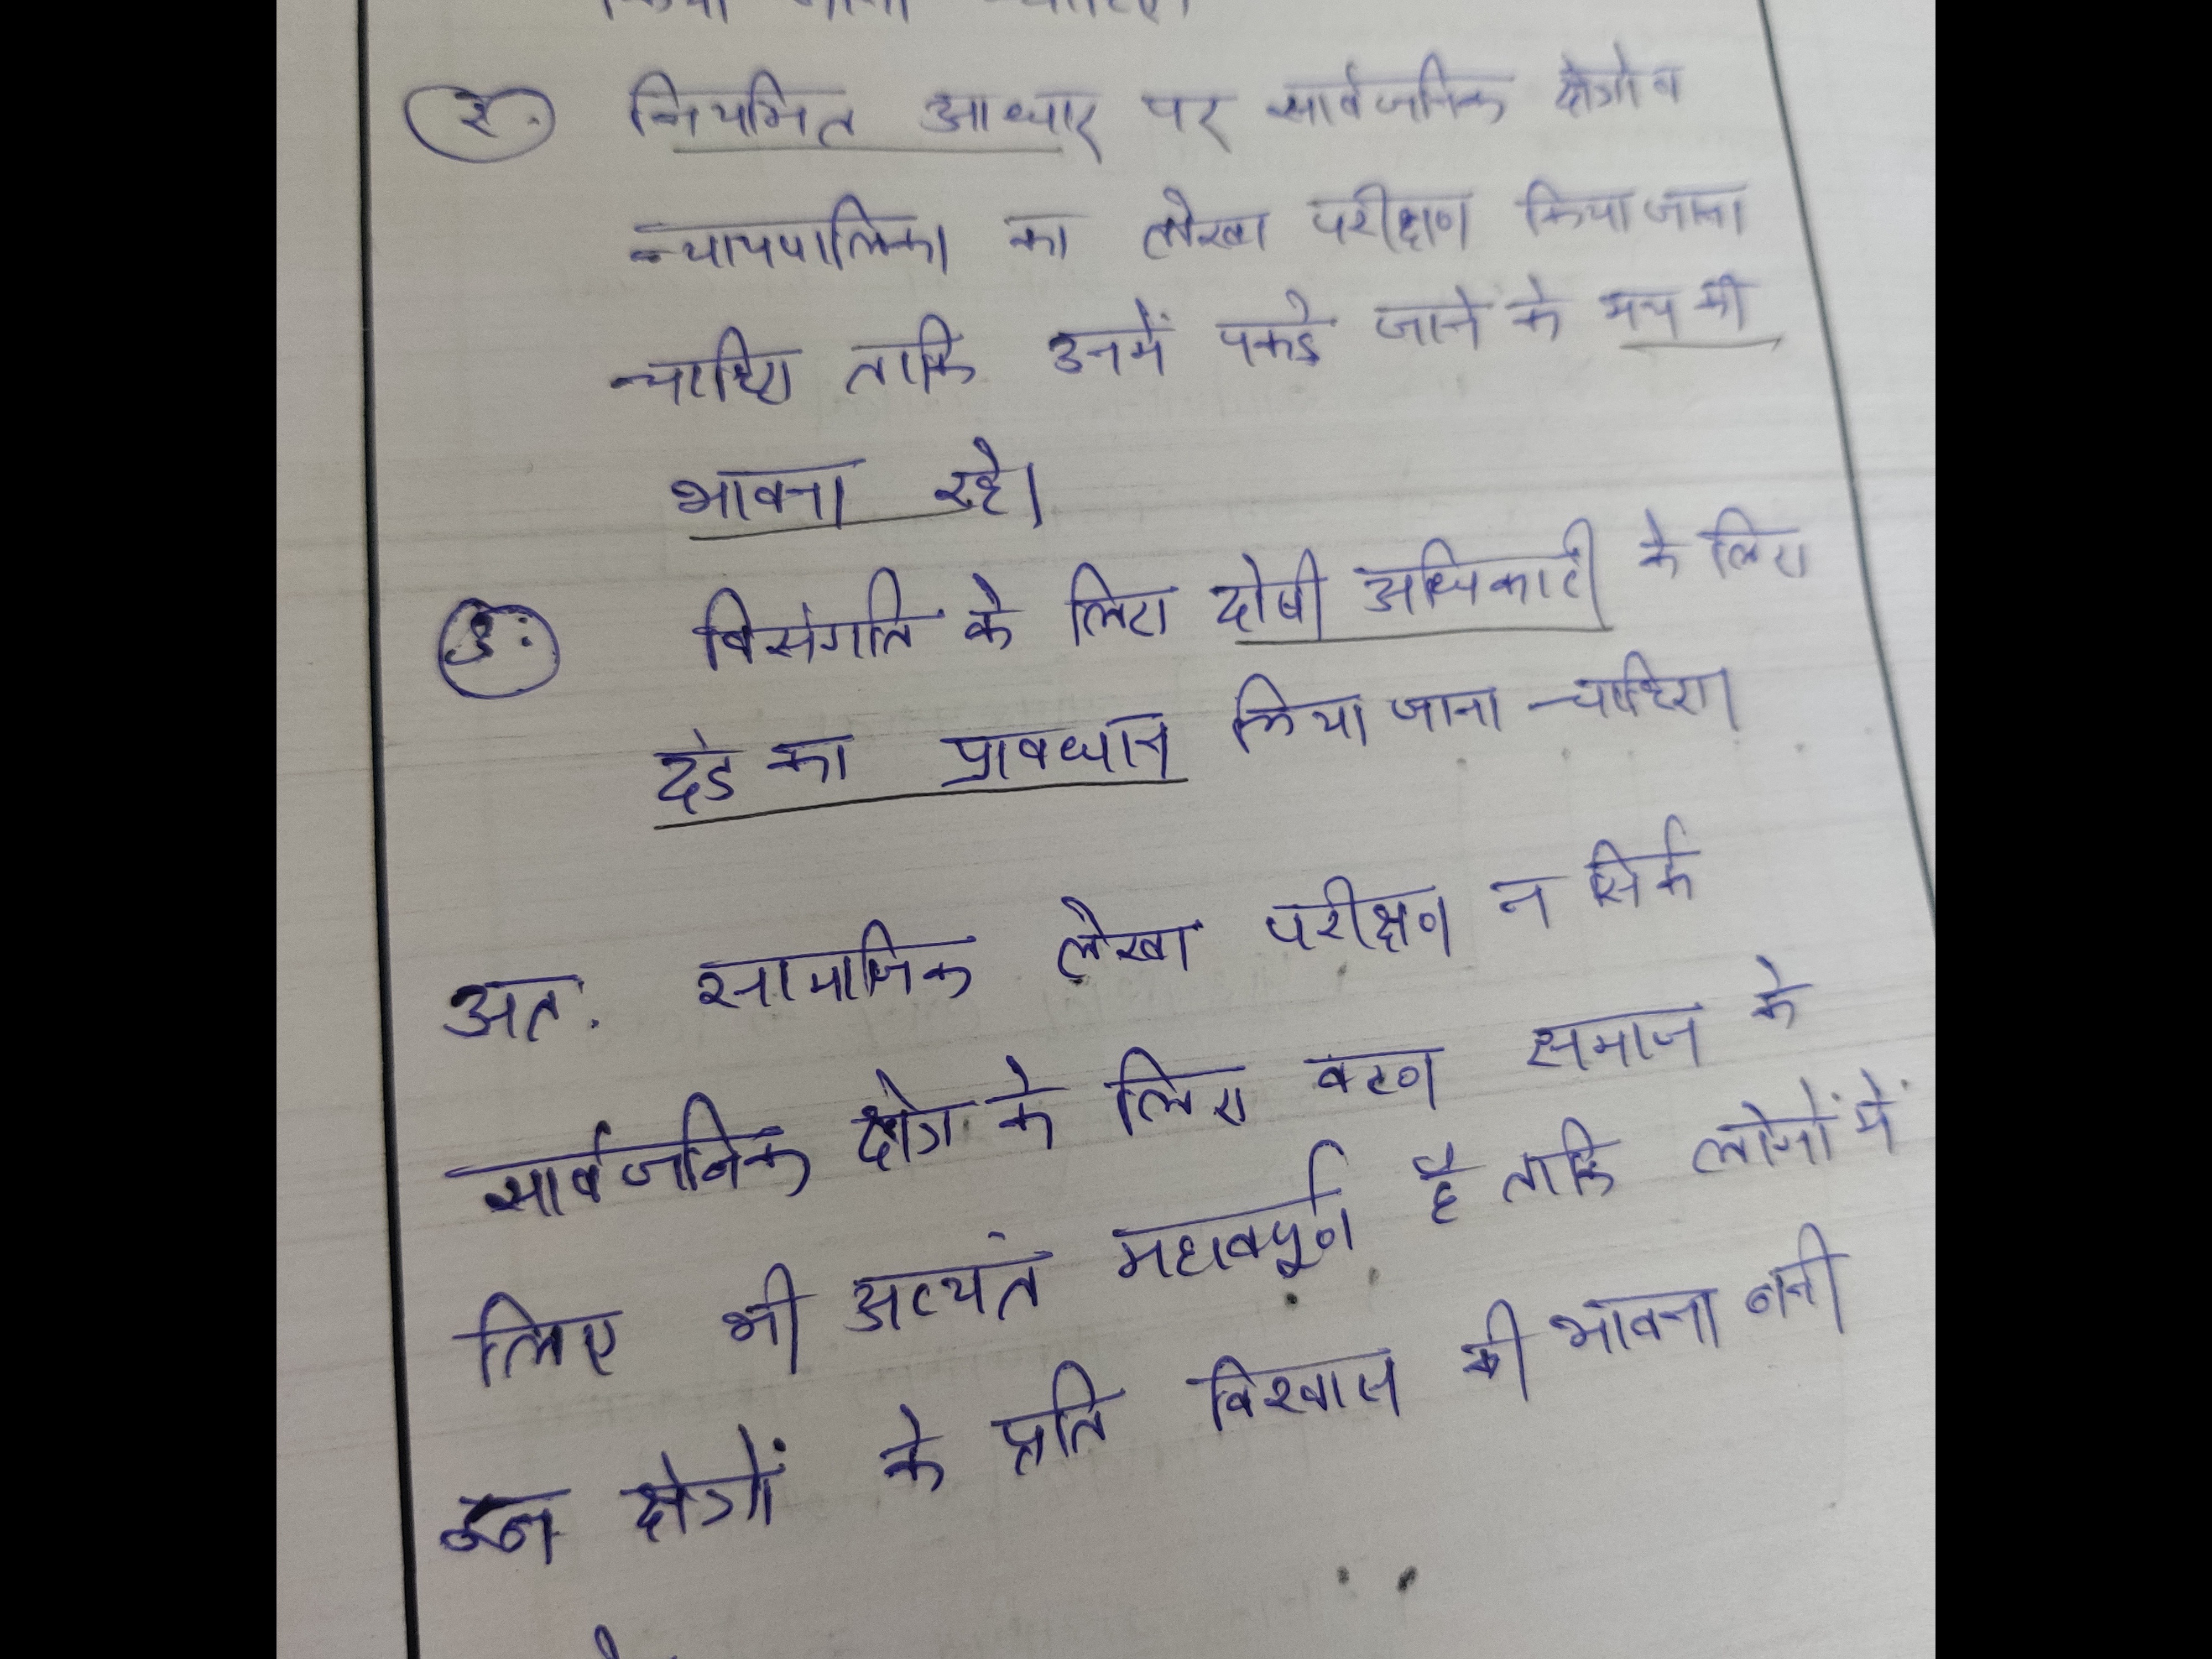 २. नियमित आधार पर सार्वजनिक क्षेत्रो व
न्यायपालिका का लेखा परीक्षण किया जाना
चाहिए ताकि उनमें पकडे जाने के भय की
भावना रहे।
3. विसंगति के लिए दोषी अधिकारी के लिए
दंड का प्रावधान किया जाना चाहिए।
अत: सामाजिक लेखा परीक्षण न सिर्फ
सार्वजनिक क्षेत्र के लिए वरण समाज के
लिए भी अत्यंत महत्वपूर्ण है ताकि लोगों में
इन क्षेत्रों के प्रति विश्वास की भावना बनी